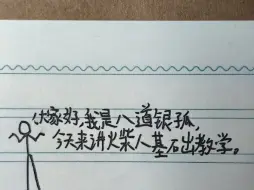 大家好,我是八道银狐,
今天来讲火柴人基石出教学。